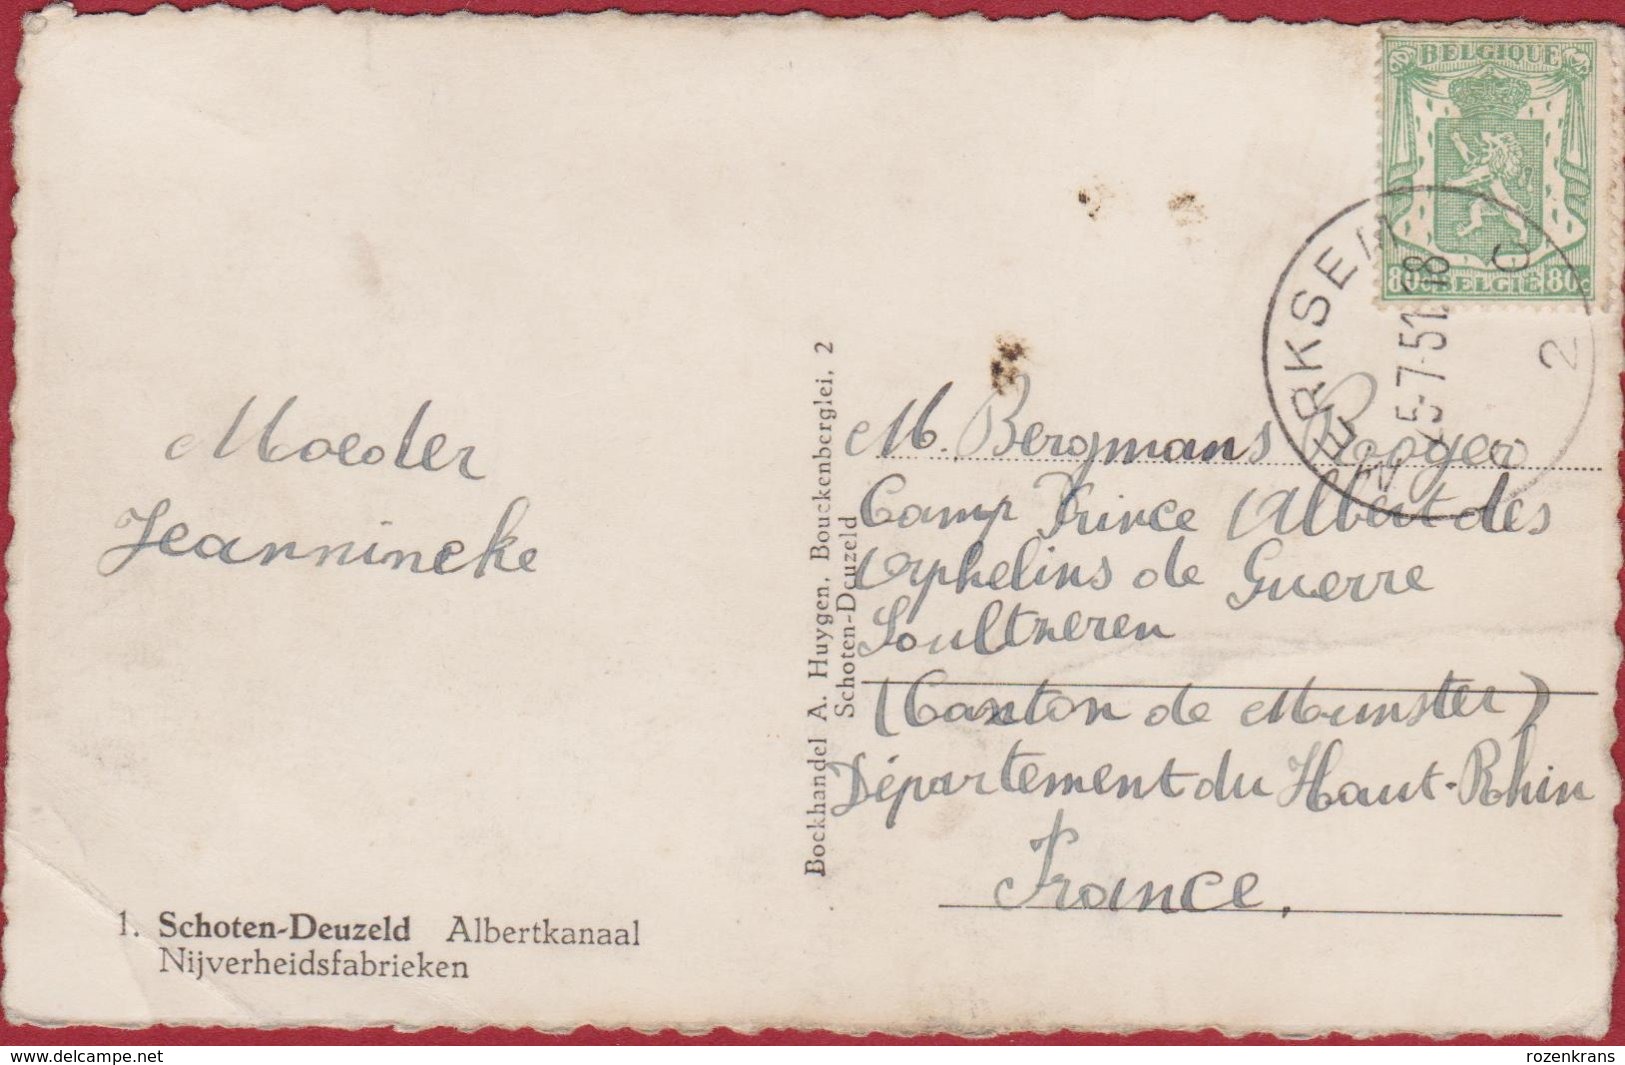 BELGIQUE
80c BELGIE 80c
MERKSEM
25-7-51 18
C
2
Moeder
Jeannineke
M. Bergmans Rooger
Camp Prince Albert des
Orphelins de Guerre
Soultzeren
(Canton de Munster)
Département du Haut-Rhin
France.
Boekhandel A. Huygen, Bouckenberglei, 2
Schoten-Deuzeld
1. Schoten-Deuzeld Albertkanaal
Nijverheidsfabrieken
www.delcampe.net
rozenkrans